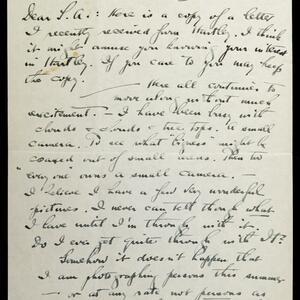 Dear S.A.: Here is a copy of a letter
I recently received from Hartley. I think
it might amuse you knowing your interest
in Hartley. If you care to you may keep
the copy.
Here all continues to
move along without much
excitement. — I have been busy with
clouds & clouds & tree tops. A small
camera. To see what "bigness" might be
coaxed out of small areas. Then too
every one owns a small camera. —
I believe I have a few very wonderful
pictures. I never can tell though what
I have until I'm through with it.
Do I ever get quite through with It?
Somehow it doesn't happen that
I am photographing persons this summer
— or at any rate not persons as